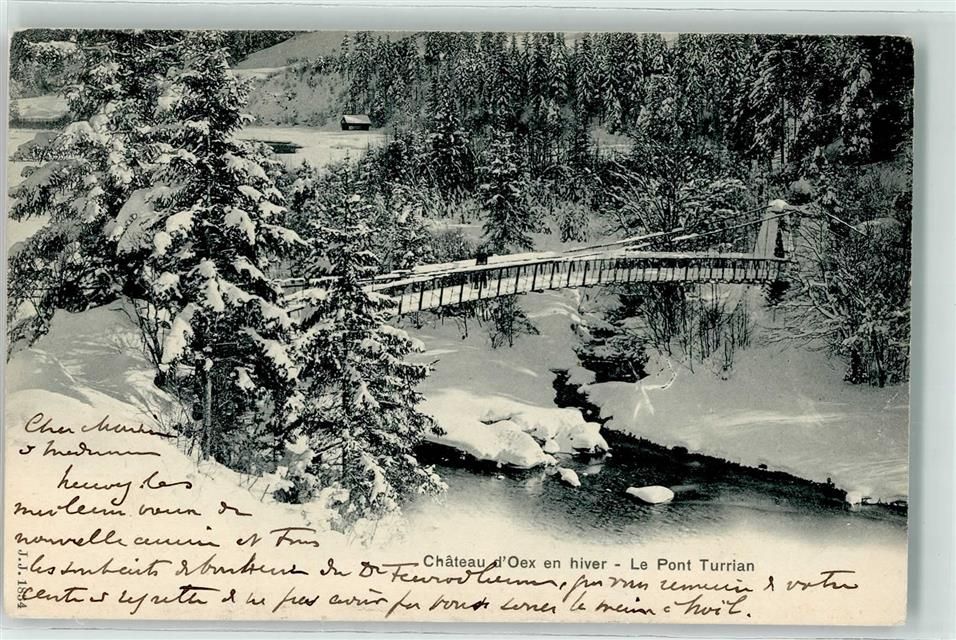 Cher Monsieur
& Madame
les
meilleurs vœux de
nouvelle année et Tous
les souhaits de bonheur du Dr
qui vous remercie de votre
carte & regrette de ne pas avoir pu vous serrer la main à Noël.
Château d'Oex en hiver - Le Pont Turrian
J.J. 1894